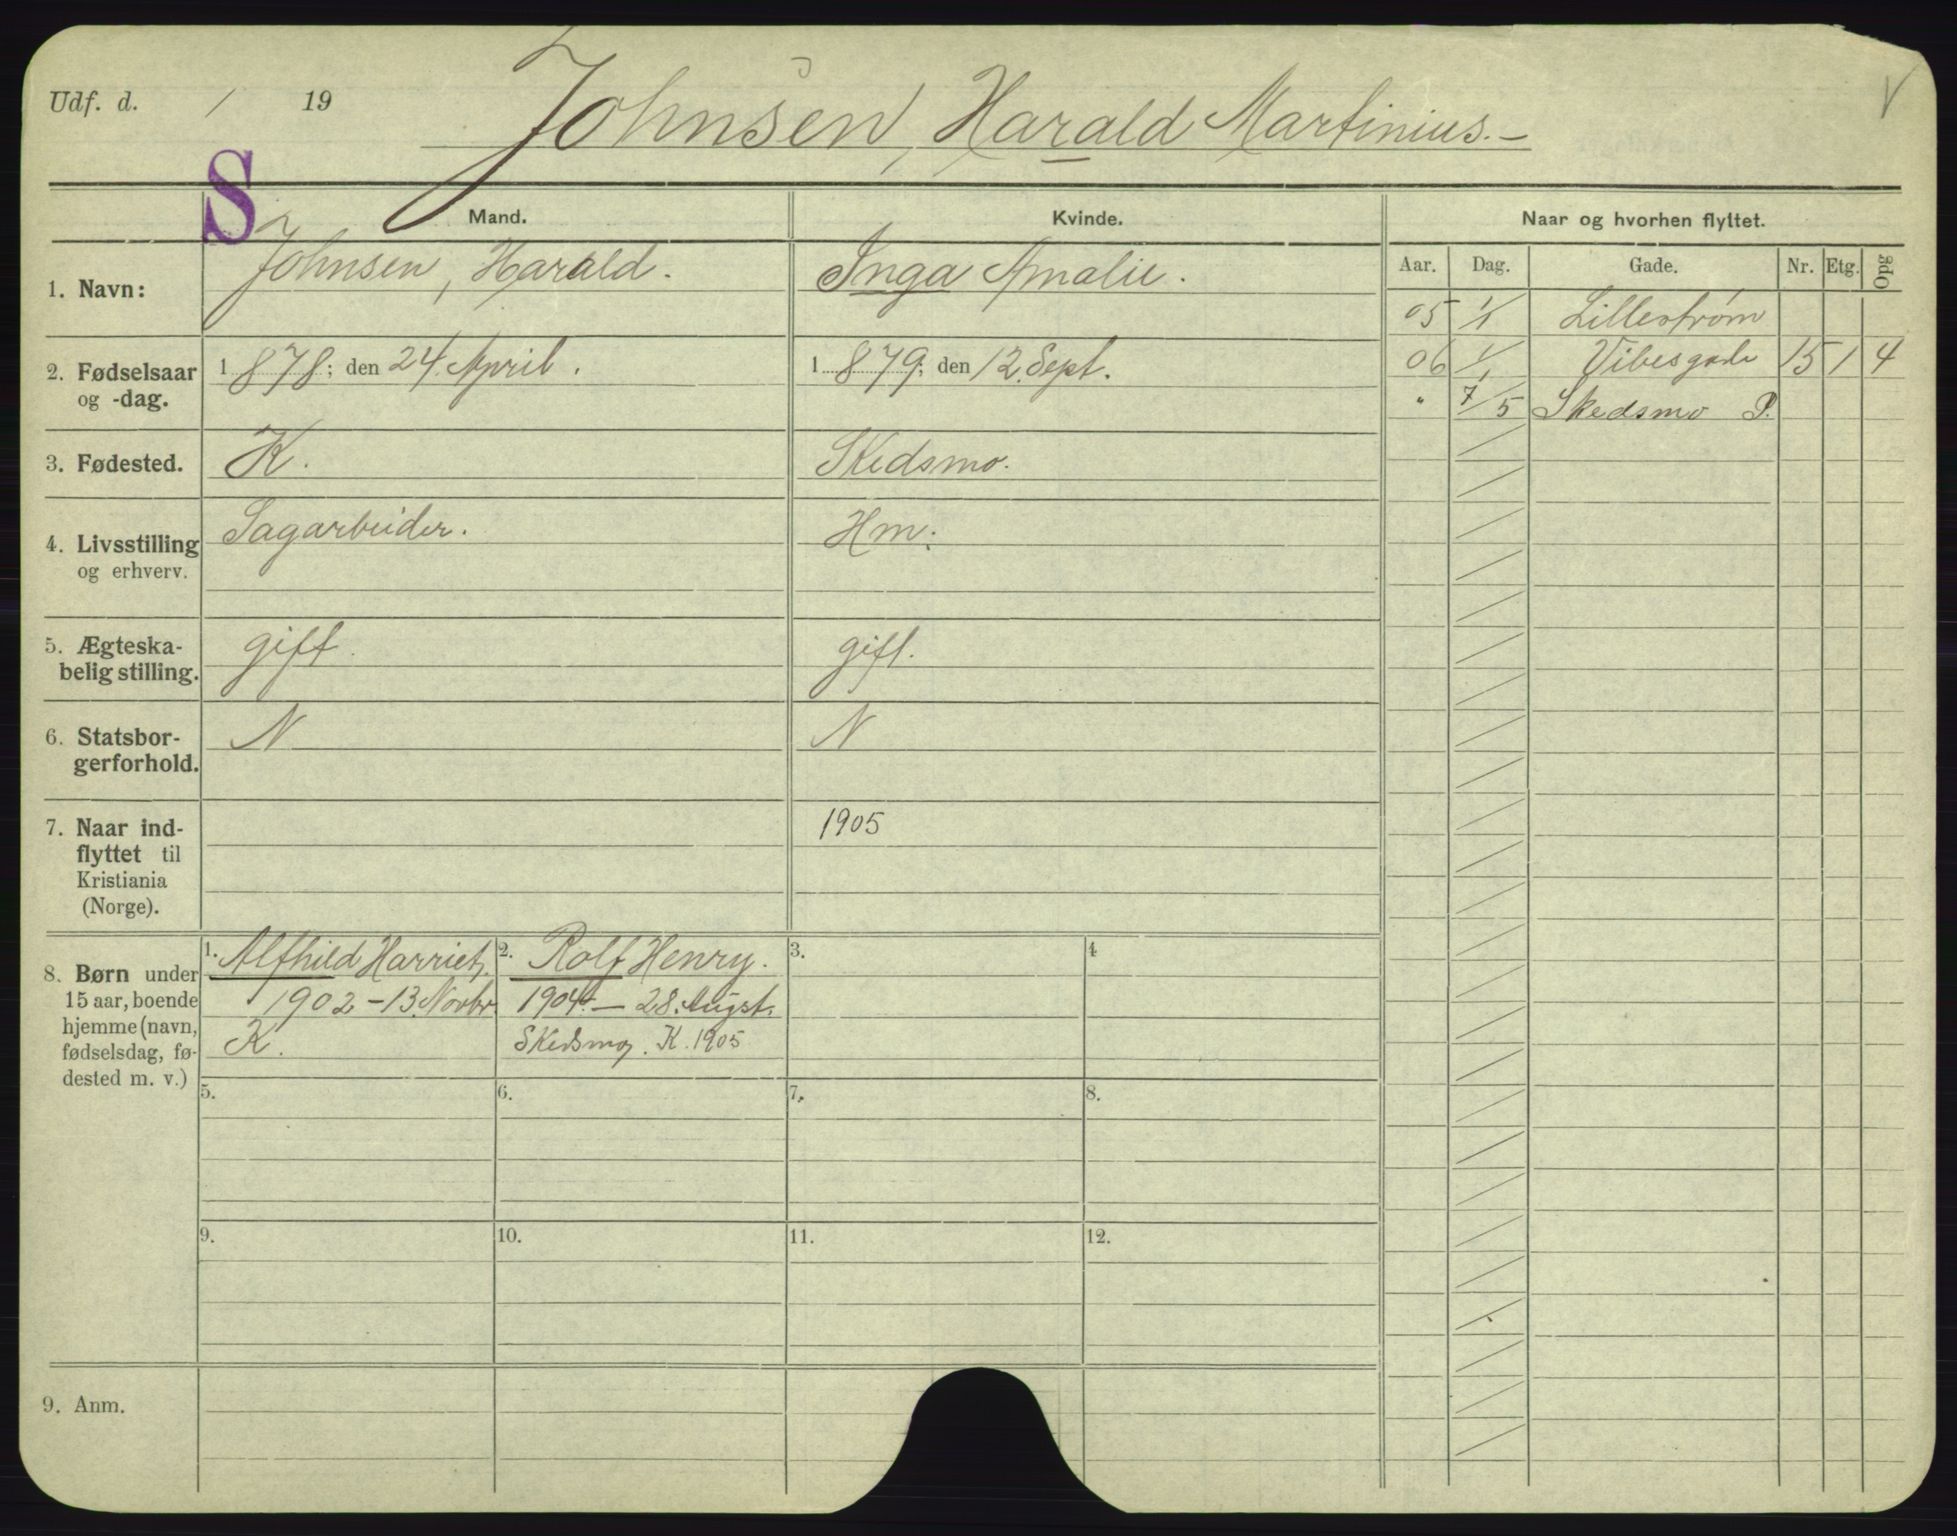 Udf. d. / 19
Johnsen, Harald Martinius.–
V
S
Mand.
Kvinde.
Naar og hvorhen flyttet.
Aar. Dag. Gade. Nr. Etg. Opg
1. Navn:
Johnsen, Harald.
Inga Amalie.
05 1/1 Lillestrøm
06 1/1 Vibesgade 15 1 4
" 7/5 Skedsmo P.
2. Fødselsaar
og -dag.
1878; den 24. April.
1879; den 12. Sept.
3. Fødested.
K.
Skedsmo.
4. Livsstilling
og erhverv.
Sagarbeider.
Hm:
5. Ægteska-
belig stilling.
gift.
gift.
6. Statsbor-
gerforhold.
N
N
7. Naar ind-
flyttet til
Kristiania
(Norge).
1905
8. Børn under
15 aar, boende
hjemme (navn,
fødselsdag, fø-
dested m. v.)
1. Alfhild Harriet,
1902 – 13. Novbr.
K.
2. Rolf Henry.
1904. – 28. Augst.
Skedsmo. K. 1905
3.
4
5.
6.
7.
8.
9.
10.
11.
12.
9. Anm.